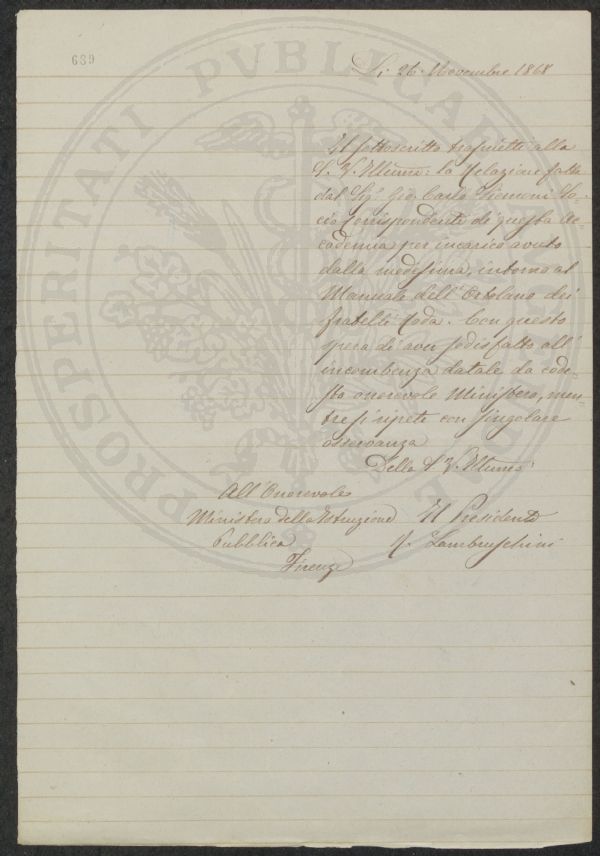 689
Li 26. Novembre 1868
Il sottoscritto trasmette alla
S. V. Illuma: la Relazione fatta
dal Sigr. Gio. Carlo Siemoni So-
cio Corrispondente di questa Ac-
cademia, per incarico avuto
dalla medesima, intorno al
Manuale dell'Ortolano dei
fratelli Roda. Con questo
spera di aver sodisfatto all'
incombenza datale da code-
sto onorevole Ministero, men-
tre si ripete con singolare
osservanza
Della S. V. Illuma
All'Onorevole
Ministero della Istruzione
Pubblica
Firenze
Il Presidente
R. Lambruschini
PROSPERITATI PVBLICAE